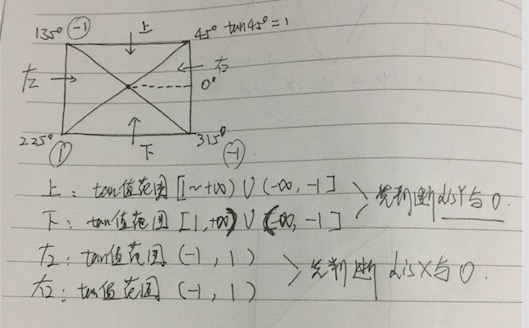 135° -1 上 45° tan45°=1
左 右
0°
225° 1 下 315° -1
上: tan值范围 [1~+∞) ∪ (-∞, -1]
先判断 disY与0.
下: tan值范围 [1, +∞) ∪ (-∞, -1]
左: tan值范围 (-1, 1)
先判断 disX与0.
右: tan值范围 (-1, 1)